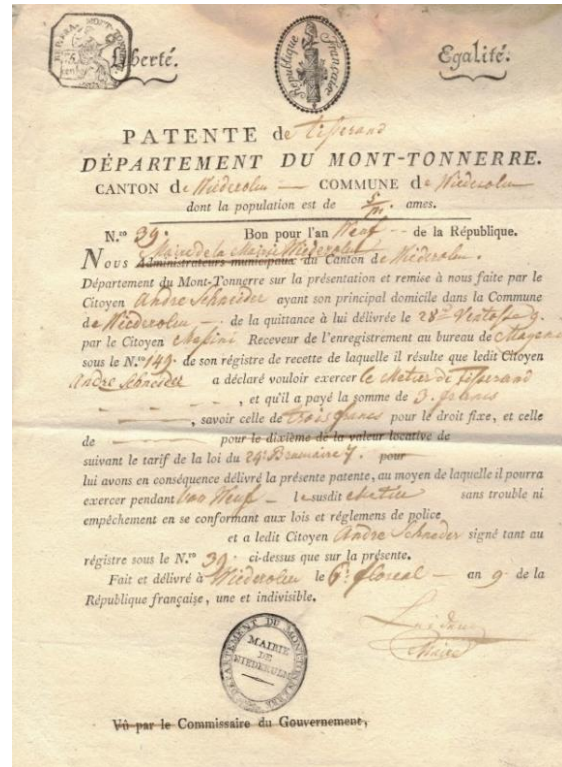 Liberté. République Française Egalité.
PATENTE de tisserand
DÉPARTEMENT DU MONT-TONNERRE.
CANTON de Niederolm — COMMUNE de Niederolm
dont la population est de 5/m. ames.
N.ro 39. Bon pour l'an Neuf - de la République.
Maire de la Mairie Niederolm
Nous Administrateurs municipaux du Canton de Niederolm.
Département du Mont-Tonnerre sur la présentation et remise à nous faite par le
Citoyen André Schneider ayant son principal domicile dans la Commune
de Niederolm - de la quittance à lui délivrée le 28 Ventose 9.
par le Citoyen Receveur de l'enregistrement au bureau de Mayence
sous le N.ro 149. de son régistre de recette de laquelle il résulte que ledit Citoyen
André Schneider a déclaré vouloir exercer le Metier de Tisserand
, et qu'il a payé la somme de 3. francs
, savoir celle de trois francs pour le droit fixe, et celle
de — pour le dixième de la valeur locative de
suivant le tarif de la loi du Brumaire 7. pour
lui avons en conséquence délivré la présente patente, au moyen de laquelle il pourra
exercer pendant l'an Neuf - le susdit Metier sans trouble ni
empêchement en se conformant aux lois et réglemens de police
et a ledit Citoyen André Schneider signé tant au
régistre sous le N.ro 39. ci-dessus que sur la présente.
Fait et délivré à Niederolm le 6. floreal - an 9. de la
République française, une et indivisible.
Maire
DÉPARTEMENT DU MONT-TONNERRE
MAIRIE
DE
NIEDERULM
Vû par le Commissaire du Gouvernement,